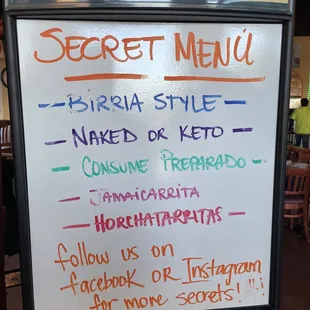 SECRET MENÚ
- BIRRIA STYLE -
- NAKED OR KETO -
- CONSUME PREPARADO -
- JAMAICARRITA
- HORCHATARRITAS -
follow us on
facebook OR Instagram
for more secrets!